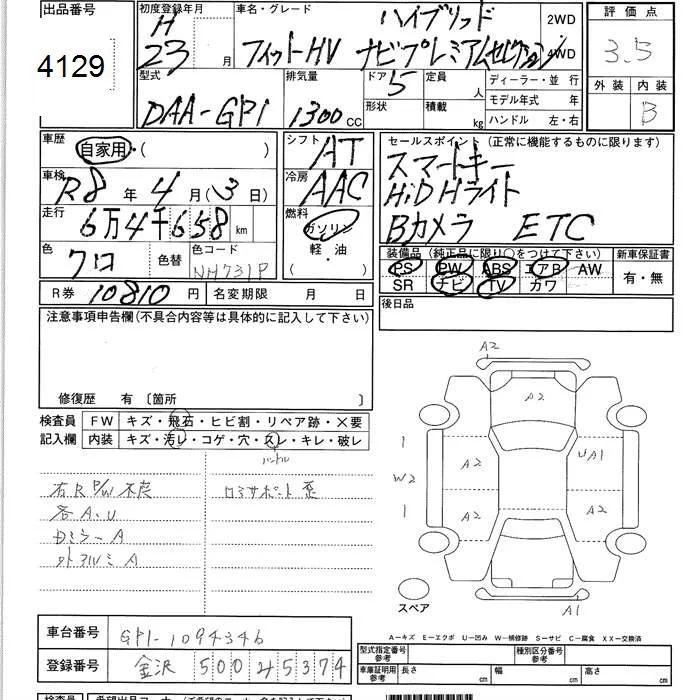 出品番号
4129
初度登録年月
H
23 月
車名・グレード
ハイブリッド
フィットHV ナビプレミアムセレクション
2WD
4WD
評価点
3.5
外装 内装
B
型式
DAA-GP1
排気量
1300 CC
ドア 5
形状
定員 人
積載 kg
ディーラー・並行
モデル年式 年
ハンドル 左・右
車歴
自家用・( )
車検
R8 年 4 月(3日)
走行
6万4千658 km
色
クロ
色替
色コード
NH731P
シフト
AT
冷房
AAC
燃料
ガソリン
軽・油
( )
セールスポイント (正常に機能するものに限ります)
スマートキー
HiDHライト
Bカメラ ETC
装備品 (純正品に限り○をつけて下さい)
PS PW ABS エアB AW
SR ナビ TV カワ
新車保証書
有・無
後日品
R券 10810 円
名変期限 月 日
注意事項申告欄(不具合内容等は具体的に記入して下さい)
修復歴 有 〔箇所 〕
検査員
記入欄
FW キズ・飛石・ヒビ割・リペア跡・×要
内装 キズ・汚レ・コゲ・穴・スレ・キレ・破レ
ハンドル
右R P/W 不良
各A.U
Dミラー A
外アルミ A
ロアサポート 歪
A2
A2
1
W2
1
A2
UA1
A2
A2
A1
スペア
A-キズ E-エクボ U-凹み W-補修跡 S-サビ C-腐食 XX-交換済
車台番号
GP1-1094346
登録番号
金沢 500 45374
型式指定番号
参考
種別区分番号
参考
車庫証明用
参考
長さ cm
幅 cm
高さ cm
検査員